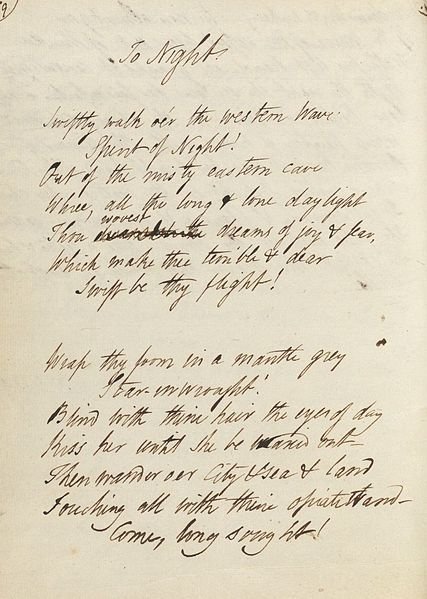 9
To Night.
Swiftly walk o'er the western wave
Spirit of Night!
Out of the misty eastern cave
Where, all the long & lone daylight
wovest
Thou dreams of joy & fear,
Which make thee terrible & dear
Swift be thy flight!
Wrap thy form in a mantle grey
Star-inwrought!
Blind with thine hair the eyes of day
Kiss her until she be wearied out—
Then wander oer City & sea & land
Touching all with thine opiate wand—
Come, long sought!